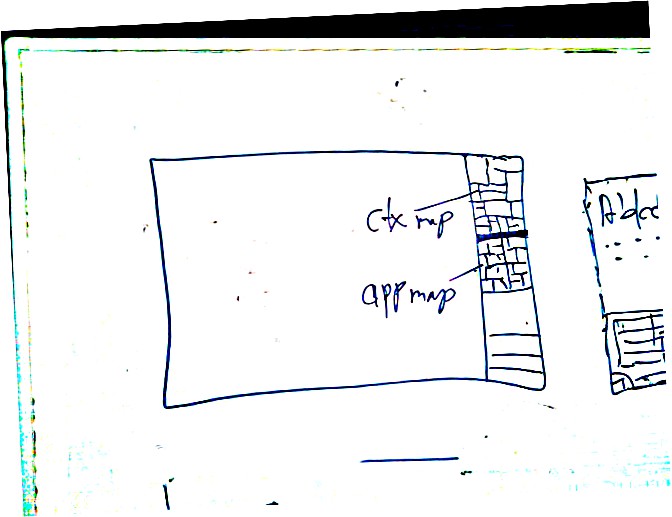 ctx map
app map